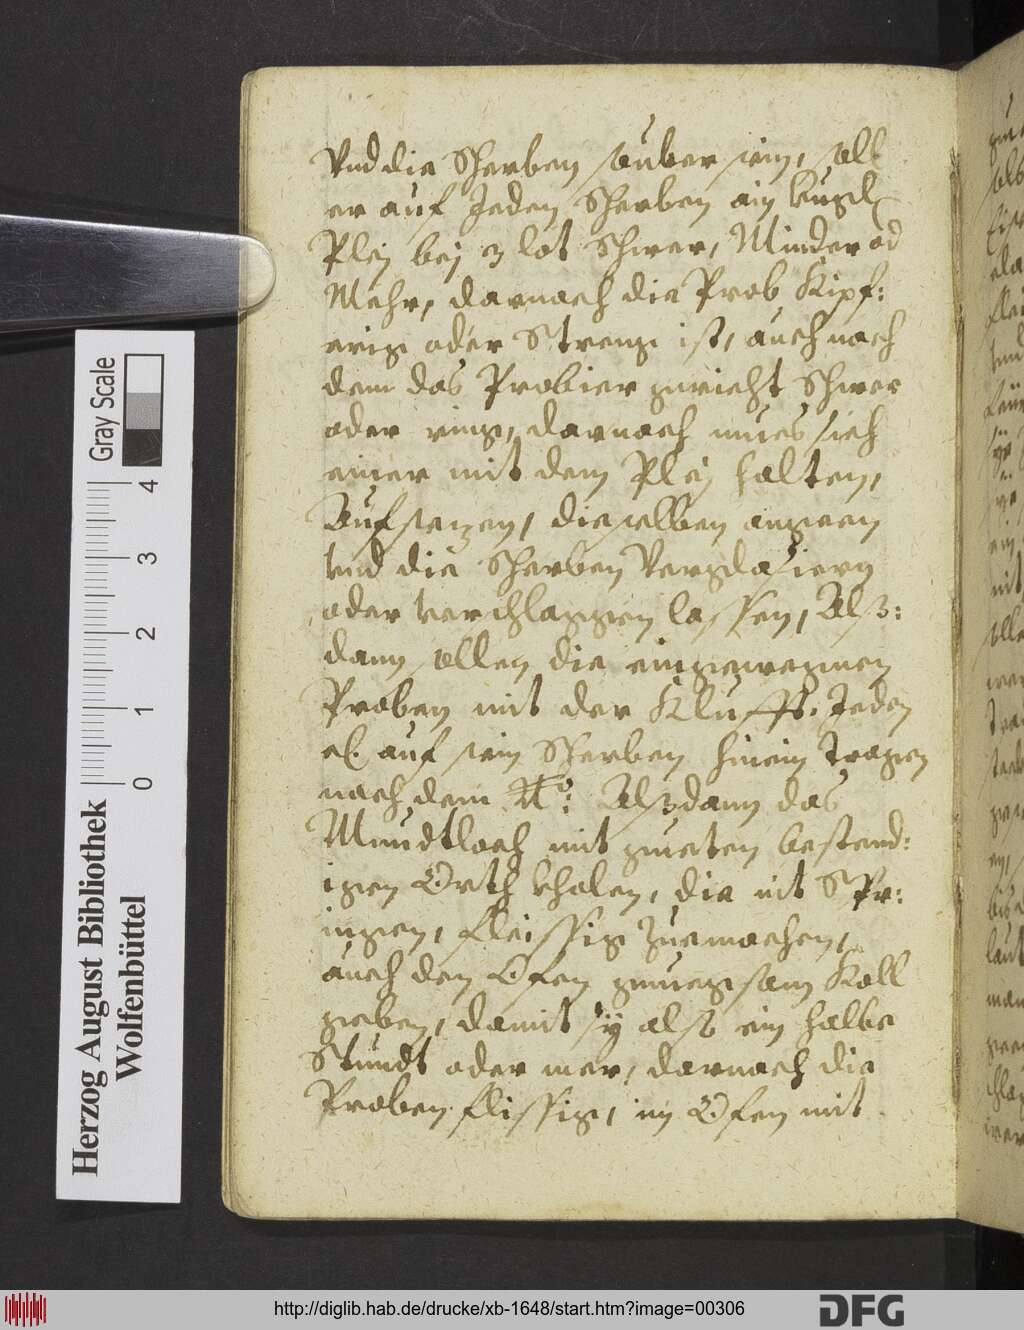 Vnd die Scherben sauber sein, soll
er auf Jeden Scherben ain kugel
Pley bey 3 lot Schwer, Minder od
Mehr, darnach die Prob Kipf:
erig oder Streng ist, auch nach
dem das Probier gwicht Schwer
oder ring, darnach mues sich
einer mit dem Pley halten,
Aufsetzen, dieselben angeen
vnd die Scherben Verglasiern
oder verschlaggen lassen, Alß:
dann sollen die eingewegnen
Proben mit der Klufft, Jeden
auf sein Scherben hinein tragen
nach dem N°: Alßdann das
Mundtloch mit gueten bestend:
igen kholen, die nit Spr:
ingen, fleissig Zuemachen,
auch den Ofen gnuegsam Koll
geben, damit sy also ein halbe
Stundt oder mer, darnach die
Proben flissig, im Ofen mit
Gray Scale
0 1 2 3 4
Herzog August Bibliothek
Wolfenbüttel
http://diglib.hab.de/drucke/xb-1648/start.htm?image=00306
DFG